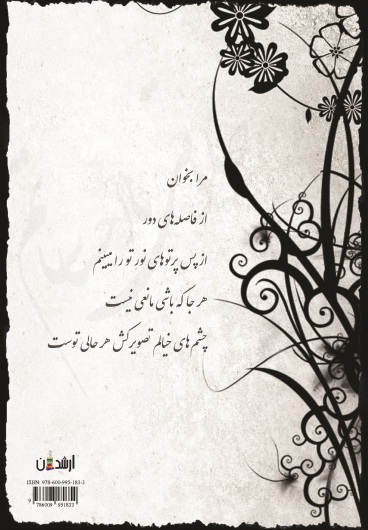 مرا بخوان
از فاصله‌های دور
از پس پرتوهای نور تو را میبینم
هر جا که باشی مانعی نیست
چشم های خیالم تصویرکش هر حالی توست
ارشدان
ISBN: 978-600-995-182-3
9 786009 951823